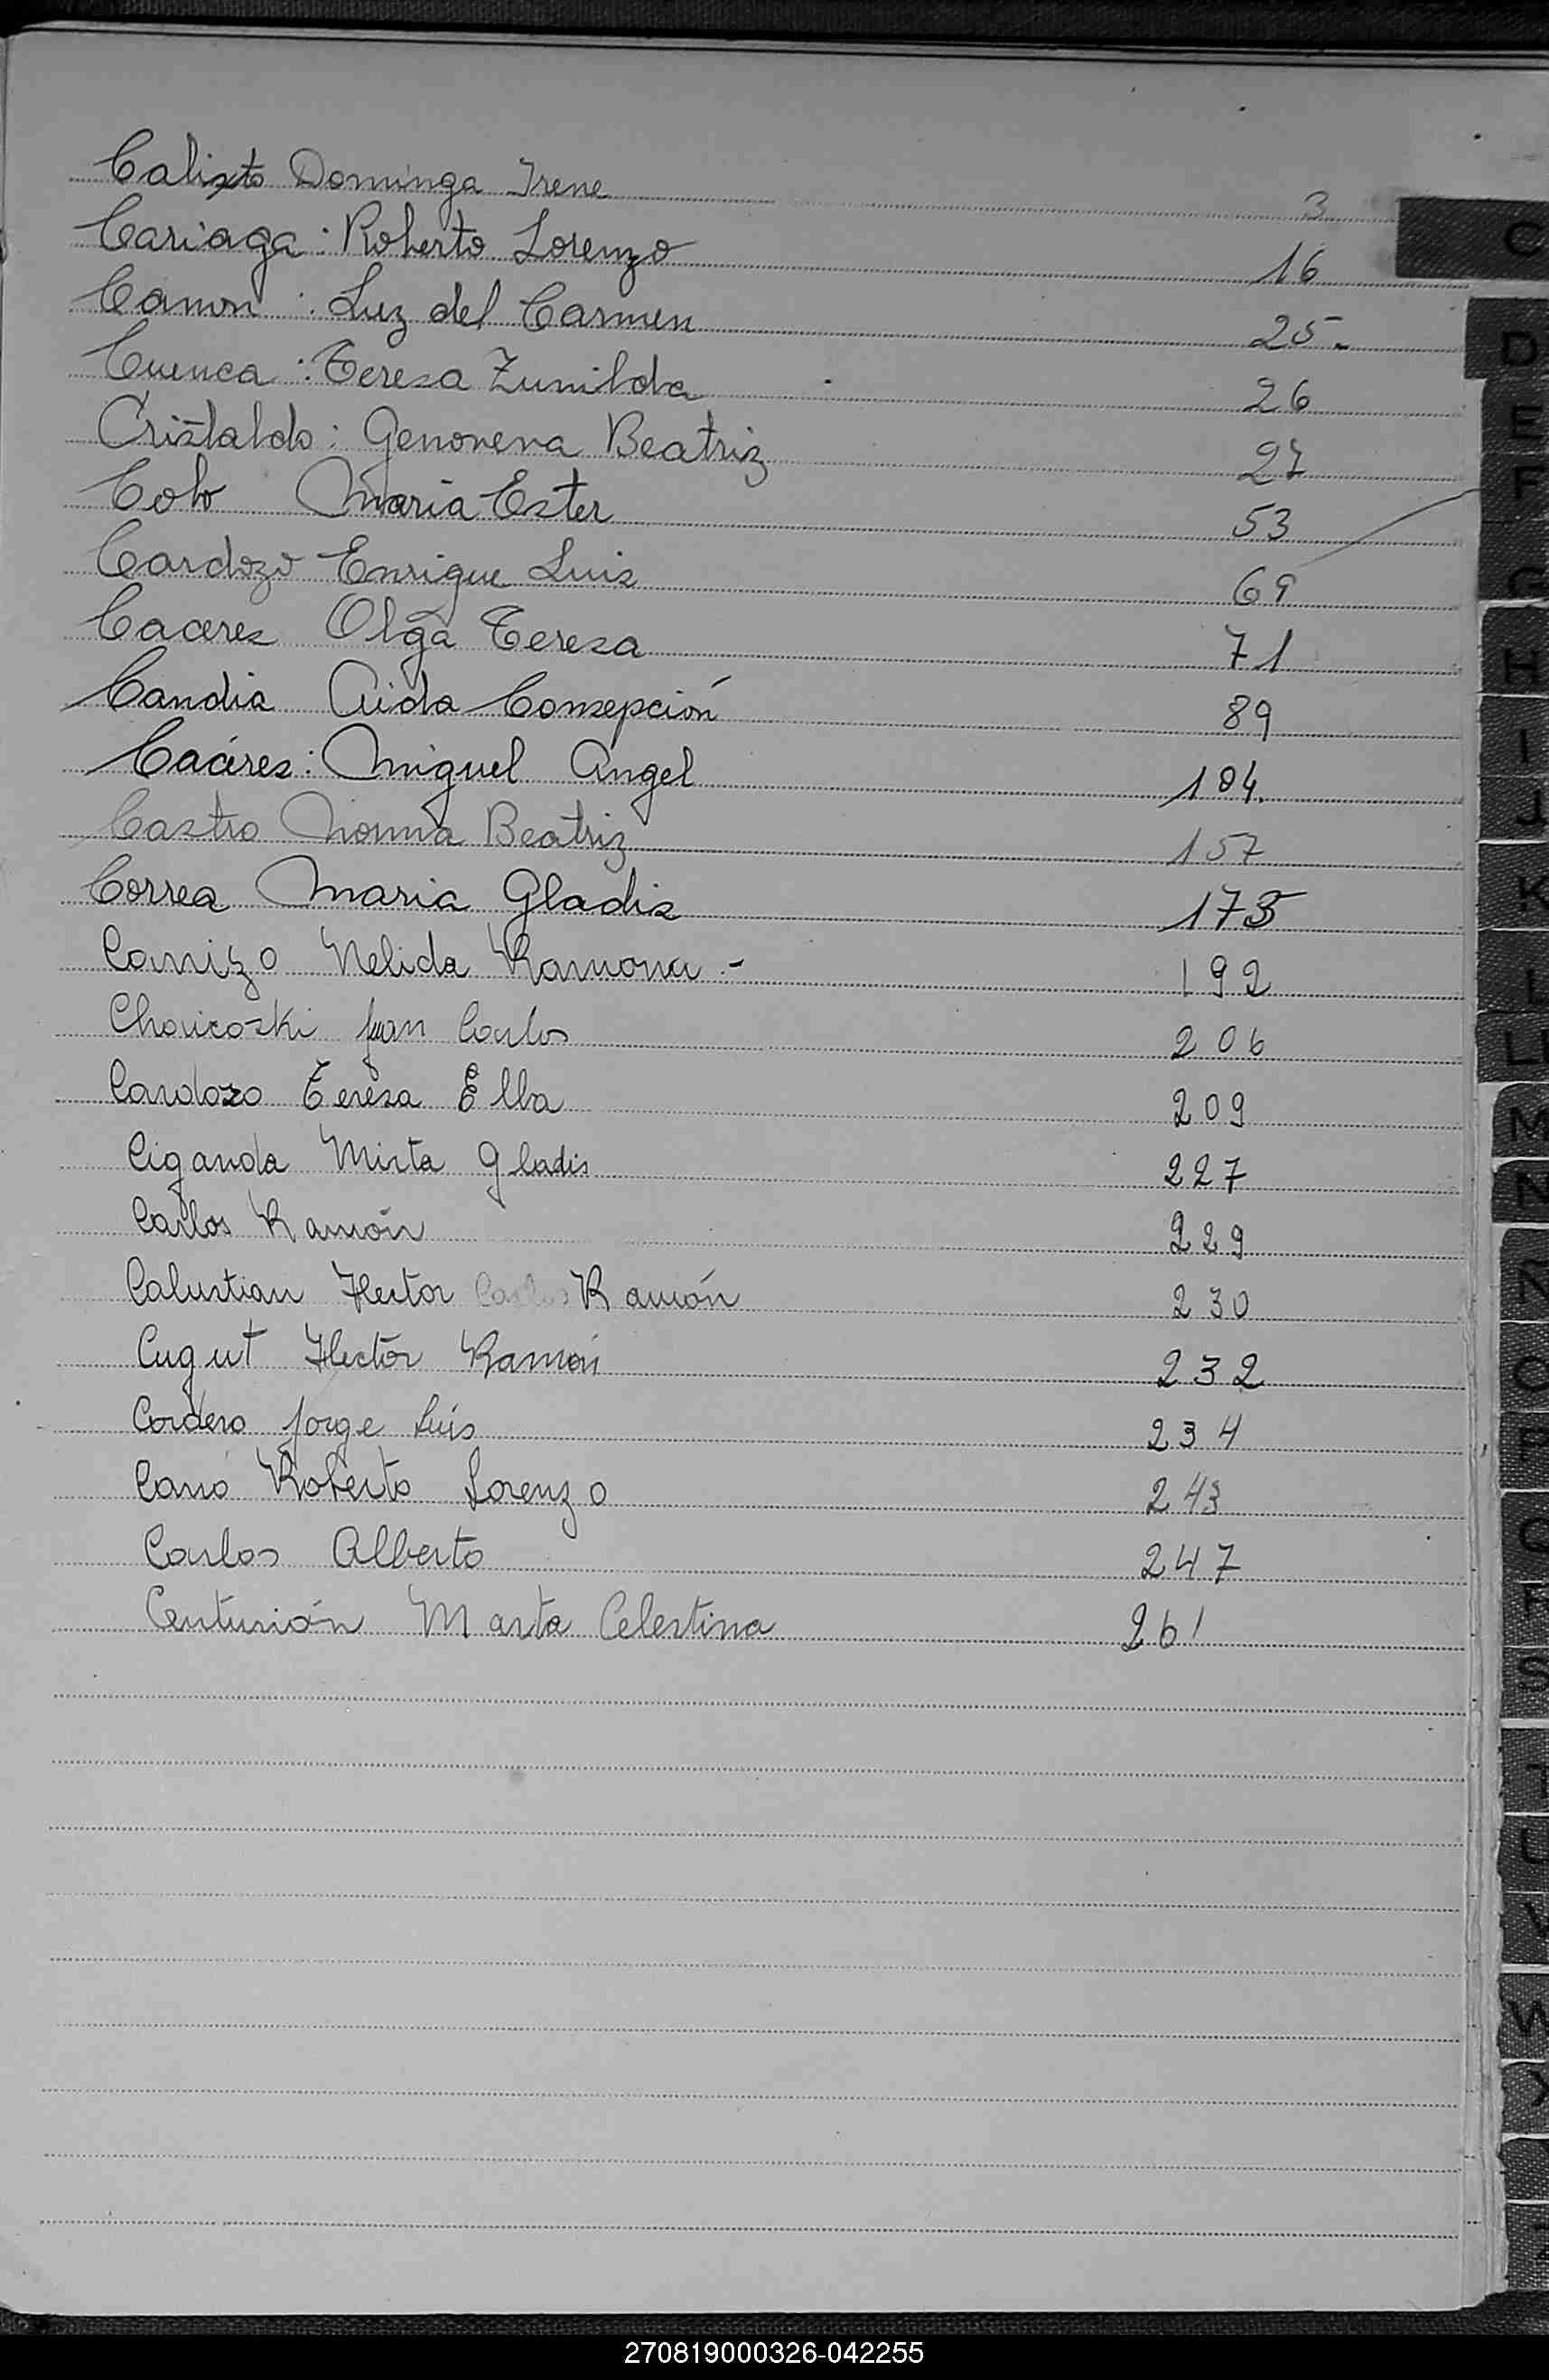 Calixto Dominga Irene 3
Cariaga: Roberto Lorenzo 16
Canon: Luz del Carmen 25.
Cuenca: Teresa Zunilda 26
Cristaldo: Genoveva Beatriz 27
Maria Ester 53
Cardozo Enrique Luis 69
Caceres Olga Teresa 71
Candia Aida Consepción 89
Cacéres: Miguel Angel 104.
Castro Norma Beatriz 157
Correa Maria Gladis 175
Nelida Ramona.- 192
Juan Carlos 206
Cardozo Teresa Elba 209
Ciganda Mirta Gladis 227
Carlos Ramón 229
Calustian Hector Carlos Ramón 230
Cugut Hector Ramón 232
Cordero Jorge Luis 234
Roberto Lorenzo 243
Carlos Alberto 247
Centurión Marta Celestina 261
C
D
E
F
G
H
I
J
K
L
LL
M
N
Ñ
O
P
Q
R
S
T
U
V
W
X
270819000326-042255